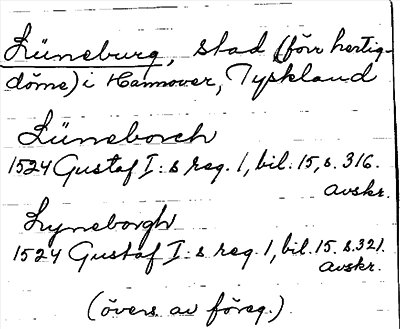 Lüneburg, stad (förr hertig-
döme) i Hannover, Tyskland
Lüneborch
1524 Gustaf I:s reg. 1, bil. 15, s. 316.
avskr.
Lyneborgh
1524 Gustaf I:s reg. 1, bil. 15, s. 321.
avskr.
(övers. av föreg.)